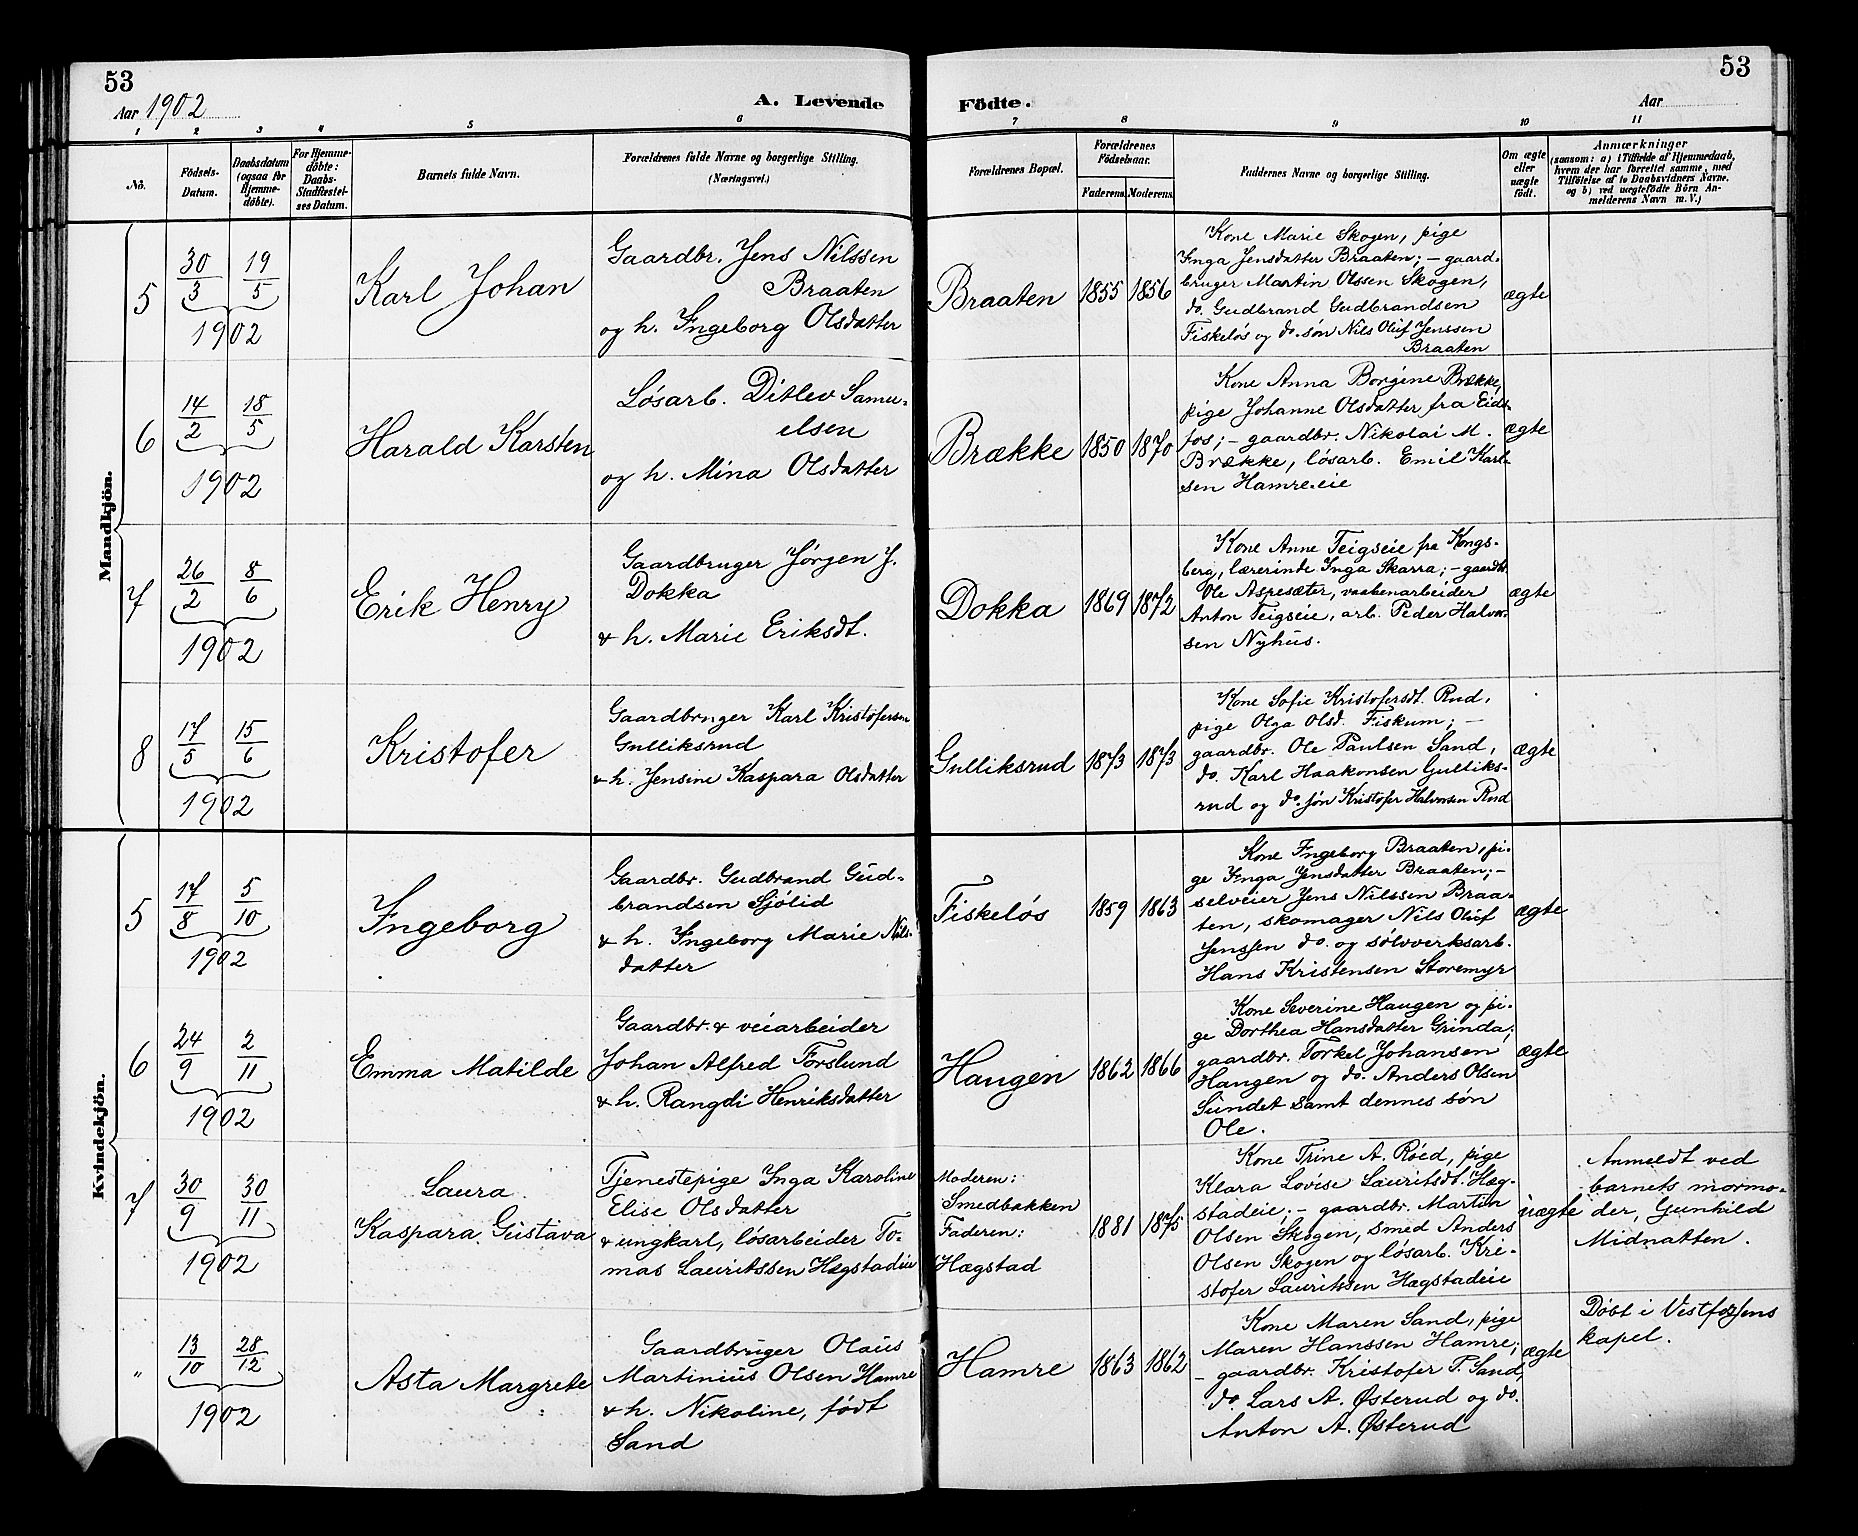 53
53
Aar 1902
A. Levende
Födte.
Aar
1 2 3 4 5 6 7 8 9 10 11
No.
Födsels-
Datum.
Daabsdatum
(ogsaa for
Hjemme-
döbte).
For Hjemme-
döbte:
Daabs-
Stadfæstel-
ses Datum.
Barnets fulde Navn.
Forældrenes fulde Navne og borgerlige Stilling.
(Næringsvei.)
Forældrenes Bopæl.
Forældrenes
Födselsaar.
Faderens. Moderens.
Faddernes Navne og borgerlige Stilling.
Om ægte
eller
uægte
födt.
Anmærkninger
(saasom: a) i Tilfælde af Hjemmedaab,
hvem der har forrettet samme, med
Tilföielse af to Daabsvidners Navne,
og b) ved uægtefödte Börn An-
melderens Navn m. V.)
Mandkjön.
5
30/3 19/5
1902
Karl Johan
Gaardbr. Jens Nilssen
Braaten
og h. Ingeborg Olsdatter
Braaten
1855 1856
Kone Marie Skogen, pige
Inga Jensdatter Braaten; – gaard-
bruger Martin Olssen Skogen,
do. Gudbrand Gudbrandsen
Fiskeløs og do. søn Nils Oluf Jenssen
Braaten
ægte
6
14/2 18/5
1902
Harald Karsten
Løsarb. Ditlev Samu-
elsen
og h. Mina Olsdatter
Brække
1850 1870
Kone Anna Borgine Brække,
pige Johanne Olsdatter fra Eids-
fos; – gaardbr. Nikolai M.
Brække, løsarb. Emil Karl-
sen Hamreeie
ægte
7
26/2 8/6
1902
Erik Henry
Gaardbruger Jørgen J.
Dokka
& h. Marie Eriksdt.
Dokka
1869 1872
Kone Anne Teigseie fra Kongs-
berg, lærerinde Inga Skarra; – gaardb.
Ole Aspesæter, vaabenarbeider
Anton Teigseie, arb. Peder Halvor-
sen Nyhus.
ægte
8
17/5 15/6
1902
Kristofer
Gaardbruger Karl Kristofersen
Gulliksrud
& h. Jensine Kaspara Olsdatter
Gulliksrud
1873 1873
Kone Sofie Kristofersdt. Rud,
pige Olga Olsd. Fiskum; –
gaardbr. Ole Paulsen Sand,
do. Karl Haakonsen Gulliks-
rud og do. søn Kristofer Halvorsen Rud
ægte
Kvindekjön.
5
17/8 5/10
1902
Ingeborg
Gaardbr. Gudbrand Gud-
brandsen Sjølid
& h. Ingeborg Marie Nils-
datter
Fiskeløs
1859 1863
Kone Ingeborg Braaten, pi-
ge Inga Jensdatter Braaten; –
selveier Jens Nilssen Braa-
ten, skomager Nils Oluf
Jenssen do. og sølvverksarb.
Hans Kristensen Storemyr
ægte
6
24/9 2/11
1902
Emma Matilde
Gaardbr. & veiarbeider
Johan Alfred Forslund
& h. Rangdi Henriksdatter
Haugen
1862 1866
Kone Severine Haugen og pi-
ge Dorthea Hansdatter Grinda;
gaardbr. Torkel Johansen
Haugen og do. Anders Olsen
Sundet samt dennes søn
Ole.
ægte
7
30/9 30/11
1902
Laura
Kaspara Gustava
Tjenestepige Inga Karoline
Elise Olsdatter
& ungkarl, løsarbeider To-
mas Lauritssen Hægstadeie
Moderen:
Smedbakken
Faderen:
Hægstad
1881 1875
Kone Trine A. Røed, pige
Klara Lovise Lauritsdt. Hæg-
stadeie; – gaardbr. Martin
Olsen Skogen, smed Anders
Olsen Skogen og løsarb. Kri-
stofer Lauritssen Hægstadeie
uægte
Anmeldt ved
barnets mormo-
der, Gunhild
Midnatten.
"
13/10 28/12
1902
Asta Margrete
Gaardbruger Olaus
Martinius Olsen Hamre
& h. Nikoline, født
Sand
Hamre
1863 1862
Kone Maren Sand, pige
Maren Hanssen Hamre;
– gaardbr. Kristofer T. Sand,
do. Lars A. Østerud og do.
Anton A. Østerud
ægte
Døbt i Vestfossens
kapel.